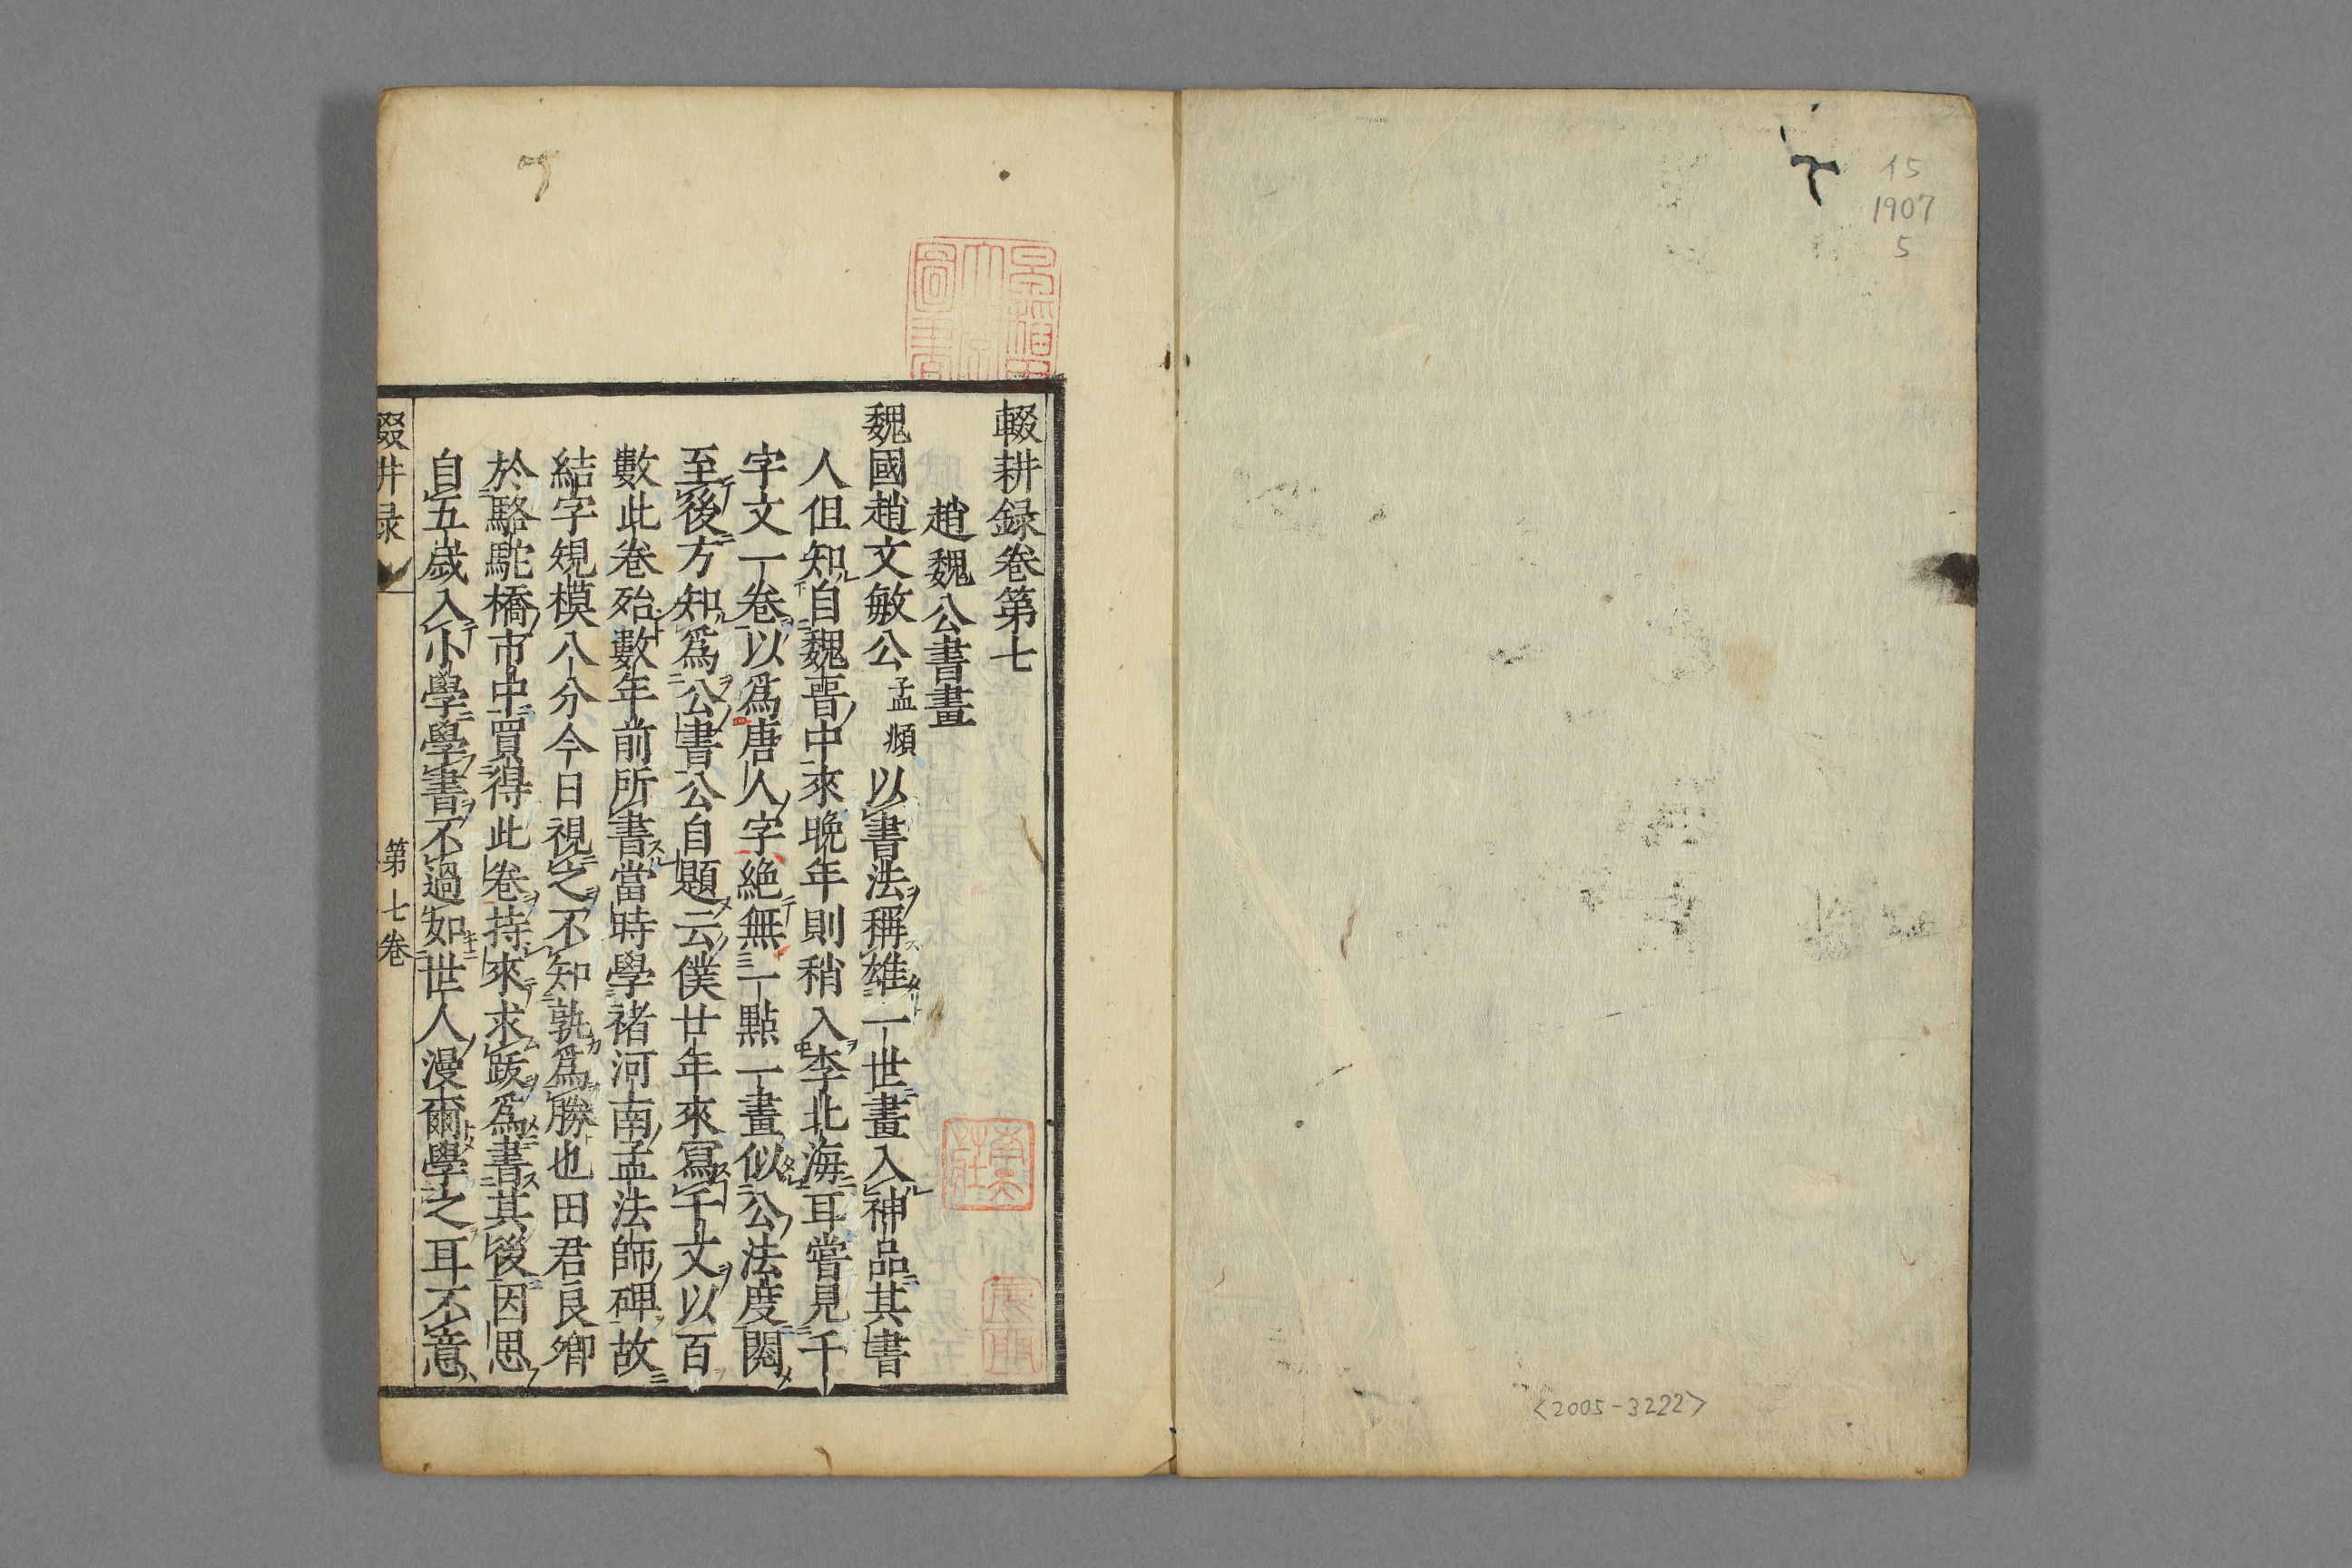 15
1907
5
<2005-3222>
輟耕録卷第七
趙魏公書畫
魏國趙文敏公孟頫以書法稱雄一世畫入神品其書
人但知自魏晉中來晚年則稍入李北海耳嘗見千
字文一卷以爲唐人字絶無一點一畫似公法度閱
至後方知爲公書公自題云僕廿年來寫千文以百
數此卷殆數年前所書當時學褚河南孟法師碑故
結字規模八分今日視之不知孰爲勝也田君良卿
於駱駝橋市中買得此卷持來求跋爲書其後因思
自五歲入小學學書不過如世人漫爾學之耳不意
輟耕録
第七卷